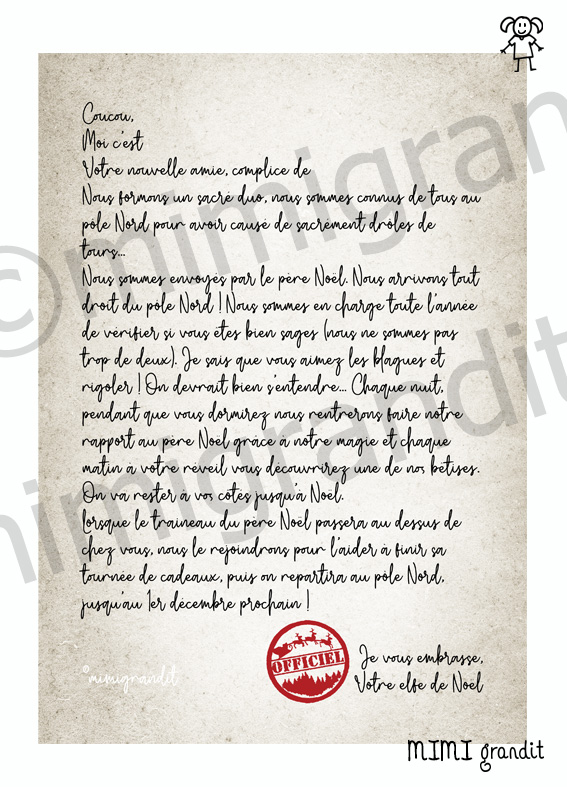 Coucou,
Moi c'est
Votre nouvelle amie, complice de
Nous formons un sacré duo, nous sommes connus de tous au
pôle Nord pour avoir causé de sacrément drôles de
tours...
Nous sommes envoyés par le père Noël. Nous arrivons tout
droit du pôle Nord ! Nous sommes en charge toute l'année
de vérifier si vous êtes bien sages (nous ne sommes pas
trop de deux). Je sais que vous aimez les blagues et
rigoler ! On devrait bien s'entendre... Chaque nuit,
pendant que vous dormirez nous rentrerons faire notre
rapport au père Noël grâce à notre magie et chaque
matin à votre réveil vous découvrirez une de nos bêtises.
On va rester à vos côtés jusqu'à Noël.
Lorsque le traineau du père Noël passera au dessus de
chez vous, nous le rejoindrons pour l'aider à finir sa
tournée de cadeaux, puis on repartira au pôle Nord,
jusqu'au 1er décembre prochain !
OFFICIEL
Je vous embrasse,
Votre elfe de Noël
©mimigrandit
MIMI grandit
©mimigran
mimigrandit